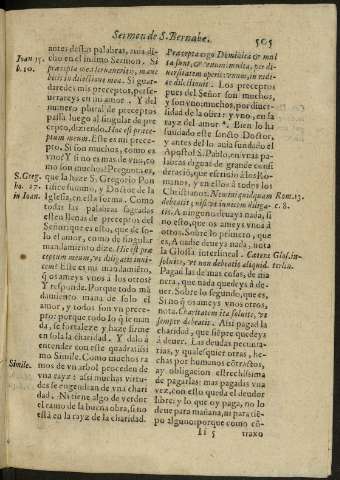 Sermon de S. Bernabe.
505
Ioan 15.
b. 10.
antes destas palabras, auia di-
cho en el mismo Sermon. Si
præcepta mea seruaueritis, mane
bitis in dilectione mea. Si guar-
dareis mis preceptos, perse-
uerareys en mi amor. Y del
numero plural de preceptos
passa luego al singular de pre
cepto, diziendo, Hoc est præce
ptum meum. Este es mi prece-
pto. Si son muchos, como es
vno? Y si no es mas de vno, co
mo son muchos? Pregunta es,
S. Greg.
ho. 27.
in Ioan.
que la haze S. Gregorio Pon
tifice summo, y Doctor de la
Iglesia, en esta forma. Como
todas las palabras sagradas
esten llenas de preceptos del
Señor: que es esto, que de so-
lo el amor, como de singular
mandamiento dize. Hoc est præ
ceptum meum, vt diligatis inui
cem? Este es mi mandamiẽto,
q̃ os ameys vnos à los otros?
Y responde. Porque todo mã
damiento mana de solo el
amor, y todos son vn prece-
pto: porque todo lo q̃ le man
da, se fortaleze y haze firme
en sola la charidad. Y dalo à
entender con este quadrativi
Simile.
mo Simile. Como muchos ra
mos de vn arbol proceden de
vna rayz: assi muchas virtu-
des se engendran de vna chari
dad. Ni tiene algo de verdor
el ramo de la buena obra, si no
està en la rayz de la charidad.
Præcepta ergo Dominica & mul
ta sunt, & vnum: multa, per di-
uersitatem operis: vnum, in radi-
ce dilectionis. Los preceptos
pues del Señor son muchos,
y son vno: muchos, por diuer-
sidad de la obra: y vno, en la
rayz del amor. Bien lo ha
fundado este sancto Doctor,
y antes del lo auia fundado el
Apostol S. Pablo, en vnas pa-
labras dignas de grande consi
deraciõ, que escriuiò à los Ro-
manos, y en ellos à todos los
Christianos. Nemini quidquam
debeatis, nisi vt inuicem diliga-
Rom. 13.
c. 8.
tis. A ninguno deuays nada, si
no esto, que os ameys vnos à
otros. Sobre lo primero, que
es, A nadie deuays nada, nota
la Glossa interlineal. Ita
soluite, vt non debeatis aliquid.
Catena Glos. in-
terlin.
Pagad las demas cosas, de ma
nera, que nada quedeys à de-
uer. Sobre lo segundo, que es,
Si no q̃ os ameys vnos otros,
nota. Charitatem ita soluite, vt
semper debeatis. Assi pagad la
charidad, que siẽpre quedeys
à deuer. Las deudas pecunia-
rias, y qualesquier otras, he-
chas por humanos cõtractos,
ay obligacion estrechissima
de pagarlas: pagadas vna
vez, con esto queda el deudor
libre: y lo que oy paga, no lo
deue para mañana, ni para tiẽ-
po alguno: porque como cõ-
Ii 5
traxo